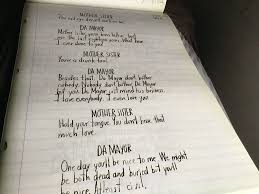 MOTHER SISTER
You
DA MAYOR
Mother
ever done to you?
MOTHER SISTER
You're a drunk fool.
DA MAYOR
Besides that. Da Mayor don't bother
nobody. Nobody don't bother Da Mayor
but you. Da Mayor just mind his business.
I love everybody. I even love you.
MOTHER SISTER
Hold your tongue. You don't have that
much love.
DA MAYOR
One day you'll be nice to me. We might
be both dead and buried but you'll
be nice. At least civil.